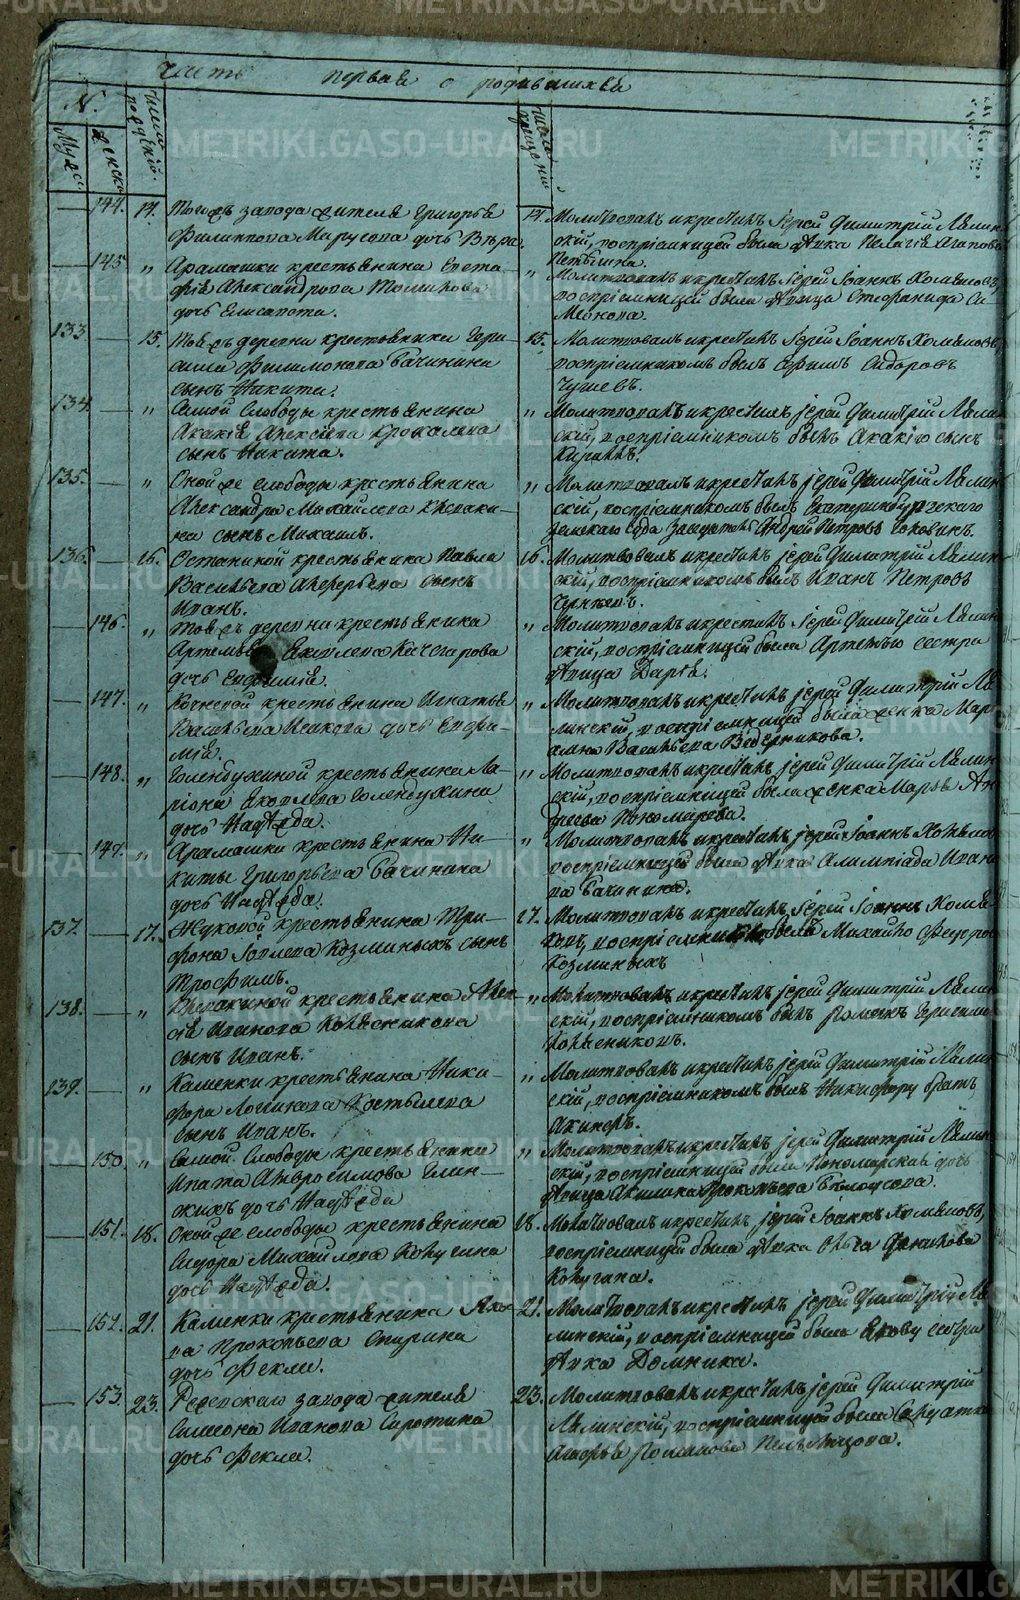 часть первая о родившихся
№.
Муже
Женска
Число рождений.
Число крещений
144. 14. Тогожъ завода жителя Григорья
Филиппова Марусова дочь Вѣра.
14. Молитвовалъ и крестилъ Іерей Димитрій Лялин
скій, воспріемницей была дѣвка Пелагія Агапова
145 „ Арамашки крестьянина Евста-
фія Александрова Томилова
дочь Елисавета.
„ Молитвовалъ и крестилъ Іерей Іоаннъ Хомяковъ,
воспріемницей была дѣвица Стефанида Си
меонова.
133. 15. Той жъ деревни крестьянина Гера-
сима Филимонова Бачинина
сынъ Никита.
15. Молитвовалъ и крестилъ Іерей Іоаннъ Хомяковъ,
воспріемникомъ былъ Ефимъ Сидоровъ
Чушевъ.
134. „ Самой Слободы крестьянина
Акакія Алексѣева
сынъ Никита.
„ Молитвовалъ и крестилъ іерей Димитрій Лялин
скій, воспріемникомъ былъ Акакію сынъ
Кириллъ.
135. „ Оной же слободы крестьянина
Александра Михайлова
на сынъ Михаилъ.
„ Молитвовалъ и крестилъ іерей Димитрій Лялин
скій, воспріемникомъ былъ Екатеринбургскаго
земскаго Суда Засѣдатель Андрей Петровъ
136. 16. Останиной крестьянина Павла
Васильева сынъ
Иванъ.
16. Молитвовалъ и крестилъ іерей Димитрій Лялин
скій, воспріемникомъ былъ Иванъ Петровъ
146. „ Той жъ деревни крестьянина
Артемья Яковлева Кочегарова
дочь Евфимія.
„ Молитвовалъ и крестилъ Іерей Димитрій Лялин
скій, воспріемницей была Артемью сестра
дѣвица Дарія.
147. „ крестьянина Игнатья
Васильева Исакова дочь Евфи-
мія.
„ Молитвовалъ и крестилъ іерей Димитрій Ля
линскій, воспріемницей была женка Мар
Васильева
148. „ Голендухиной крестьянина Ла-
ріона Яковлева Голендухина
дочь Надежда.
„ Молитвовалъ и крестилъ іерей Димитрій Лялин
скій, воспріемницей была женка Марья Ан
дреева Пономарева.
147. „ Арамашки крестьянина Ни-
киты Григорьева Бачинина
дочь Надежда.
„ Молитвовалъ и крестилъ іерей Іоаннъ Хомяко
воспріемницей была дѣвка Алимпіада Ивано
ва Бачинина.
137. 17. Жуковой крестьянина Три-
фона Козминыхъ сынъ
Трофимъ.
17. Молитвовалъ и крестилъ Іерей Іоаннъ Хомя
ковъ, воспріемникъ былъ Михайло Федоров
Козминыхъ
138. „ крестьянина Алек-
сія Иванова Колесникова
сынъ Иванъ.
„ Молитвовалъ и крестилъ іерей Димитрій Лялин
скій, воспріемникомъ былъ Романъ Герасимо
Колесниковъ.
139. „ Каменки крестьянина Ники-
фора Логинова Костылева
сынъ Иванъ.
„ Молитвовалъ и крестилъ іерей Димитрій Лялин
скій, воспріемникомъ былъ Никифору братъ
150. „ Самой Слободы крестьянина
Ипата Амвросимова Глин-
скихъ дочь Надежда
„ Молитвовалъ и крестилъ іерей Димитрій Лялин
скій, воспріемницей была Пономарская дочь
дѣвица Акилина Прокопьева
151. 18. Оной же слободы крестьянина
Сидора Михайлова Кочугина
дочь Надежда.
18. Молитвовалъ и крестилъ іерей Іоаннъ Хомяковъ,
воспріемницей была дѣвка Ольга Данилова
Кочугина.
152. 21. Каменки крестьянина Яко-
ва Прокопьева Спирина
дочь Фекла.
21. Молитвовалъ и крестилъ іерей Димитрій Ля
линскій, воспріемницей была Якову сестра
дѣвка Домника.
153. 23. Режевскаго завода жителя
Симеона Иванова Сиротина
дочь Фекла.
23. Молитвовалъ и крестилъ іерей Димитрій
Лялинскій, воспріемницей была Солдатка
Романова
METRIKI.GASO-URAL.RU